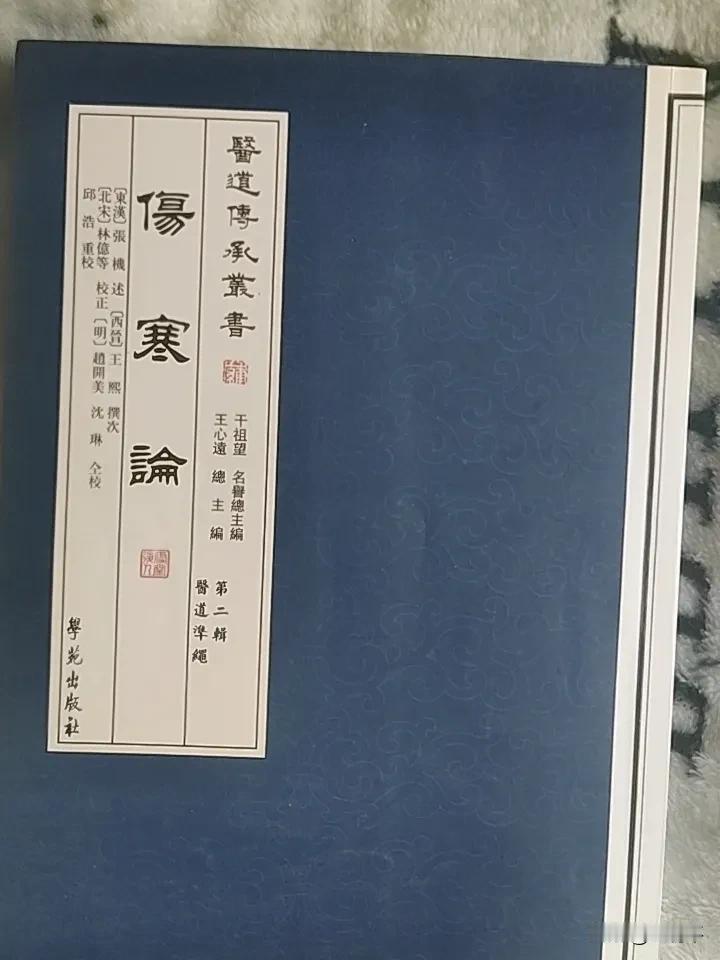 醫道傳承叢書
干祖望 名譽總主編
王心遠 總主編
第二輯
醫道準繩
傷寒論
〔東漢〕張機 述 〔西晉〕王熙 撰次
〔北宋〕林億等 校正 〔明〕趙開美 沈琳 仝校
邱浩 重校
學苑出版社